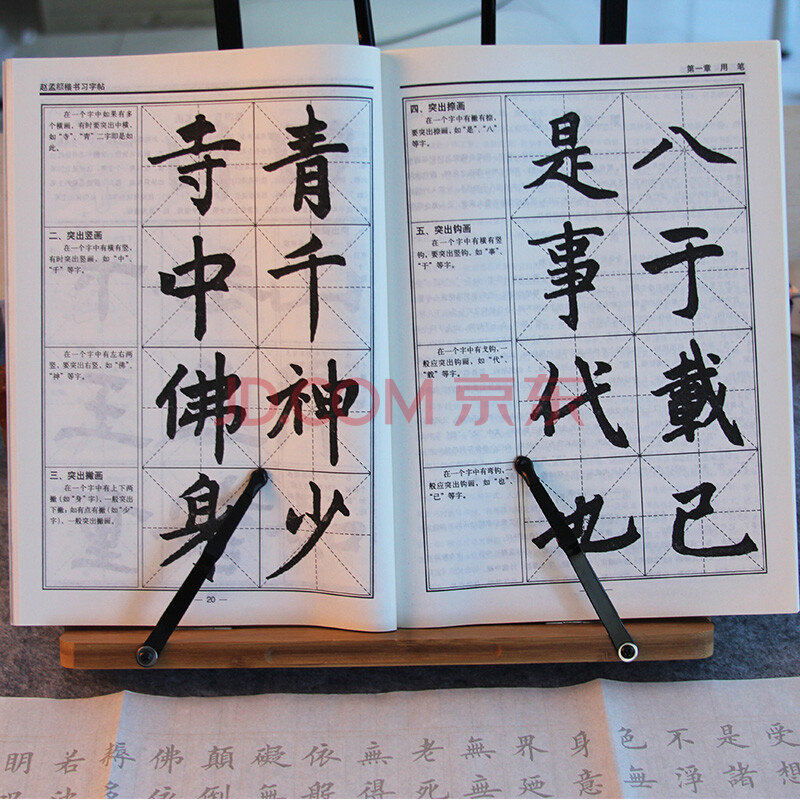 赵孟頫楷书习字帖
在一个字中如果有多
个横画，有时要突出中横，
如“寺”、“青”二字即是如
此。
寺 青
二、突出竖画
在一个字中有横有竖，
有时突出竖画，如“中”、
“千”等字。
中 千
在一个字中有左右两
竖，要突出右竖，如“佛”、
“神”等字。
佛 神
三、突出撇画
在一个字中有上下两
撇（如“身”字），一般突出
下撇；如有点有撇（如“少”
字），一般突出撇画。
身 少
— 20 —
第一章 用 笔
四、突出捺画
在一个字中有撇有捺，
要突出捺画，如“是”、“八”
等字。
是 八
五、突出钩画
在一个字中有横有竖
钩，要突出竖钩，如“事”、
“于”等字。
事 于
在一个字中有戈钩，一
般应突出钩画，如“代”、
“载”等字。
代 載
在一个字中有弯钩，
般应突出钩画，如“也”、
“已”等字。
也 已
JD.COM 京东
明 若 耨 佛 顛 礙 依 無 老 無 界 身 色 不 是 受
依 倒 無 般 得 死 無 廼 意 無 淨 諸 想